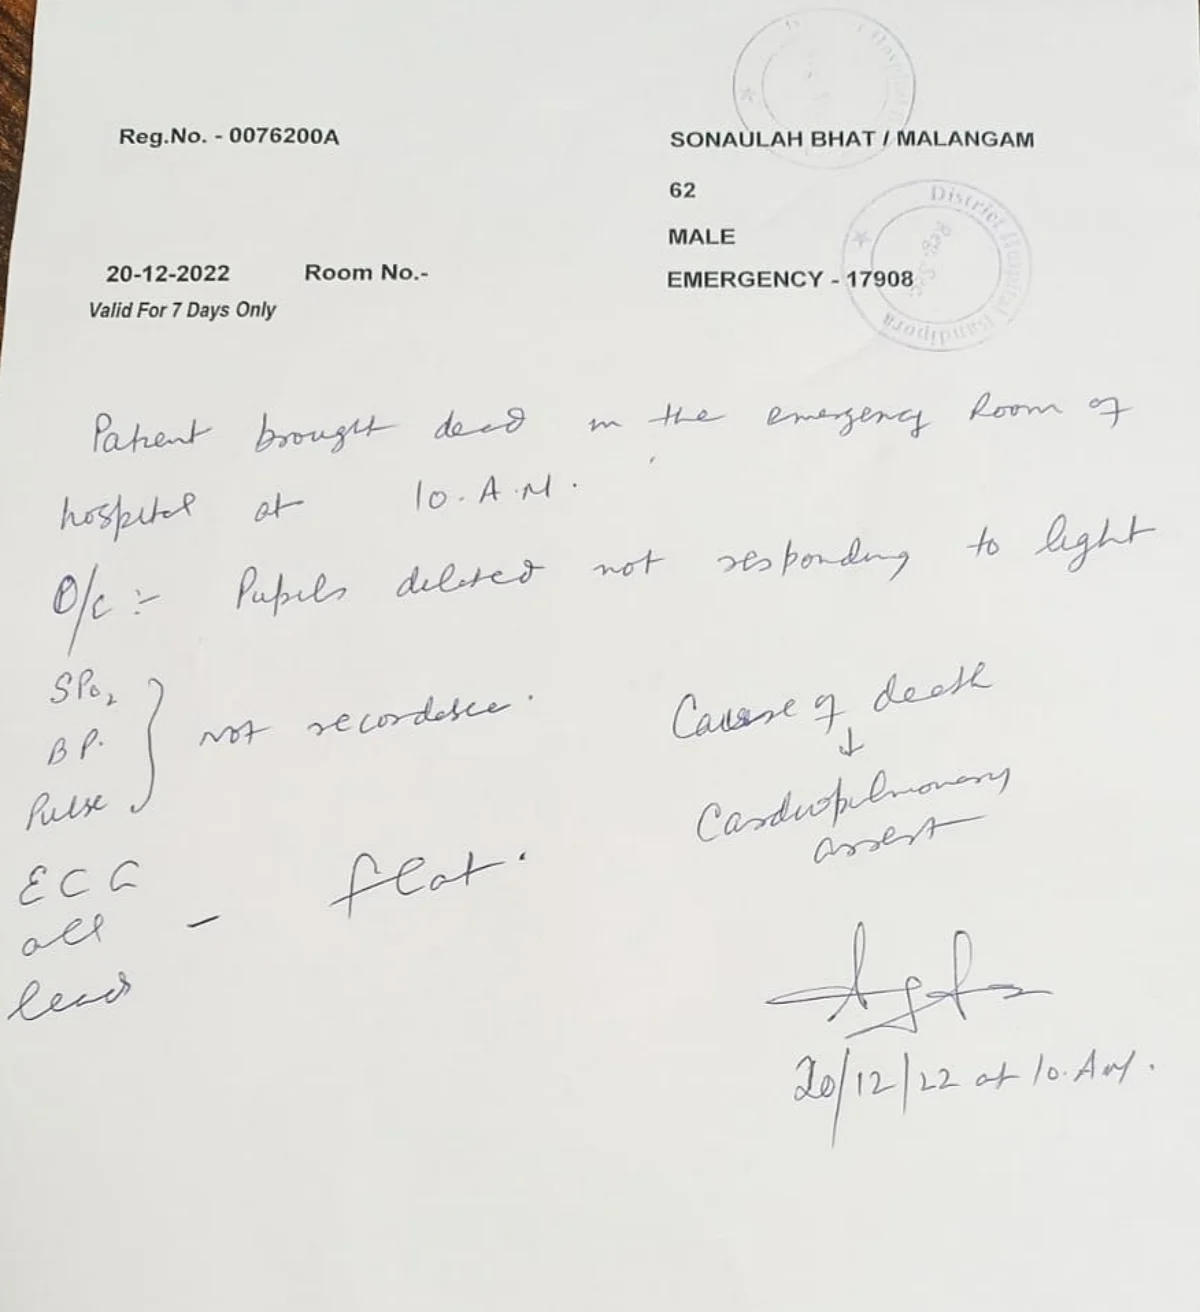 Reg.No. - 0076200A
SONAULAH BHAT / MALANGAM
62
MALE
20-12-2022 Room No.-
EMERGENCY - 17908
Valid For 7 Days Only
District Hospital Bandipora
Reg. Sec.
Patient brought dead in the emergency Room of
hospital at 10.A.M.
O/c :- Pupils dilated not responding to light
SPO2
BP.
Pulse
not recordable.
Cause of death
↓
Cardiopulmonary
arrest
ECG
all
lead
- flat.
20/12/22 at 10.AM.